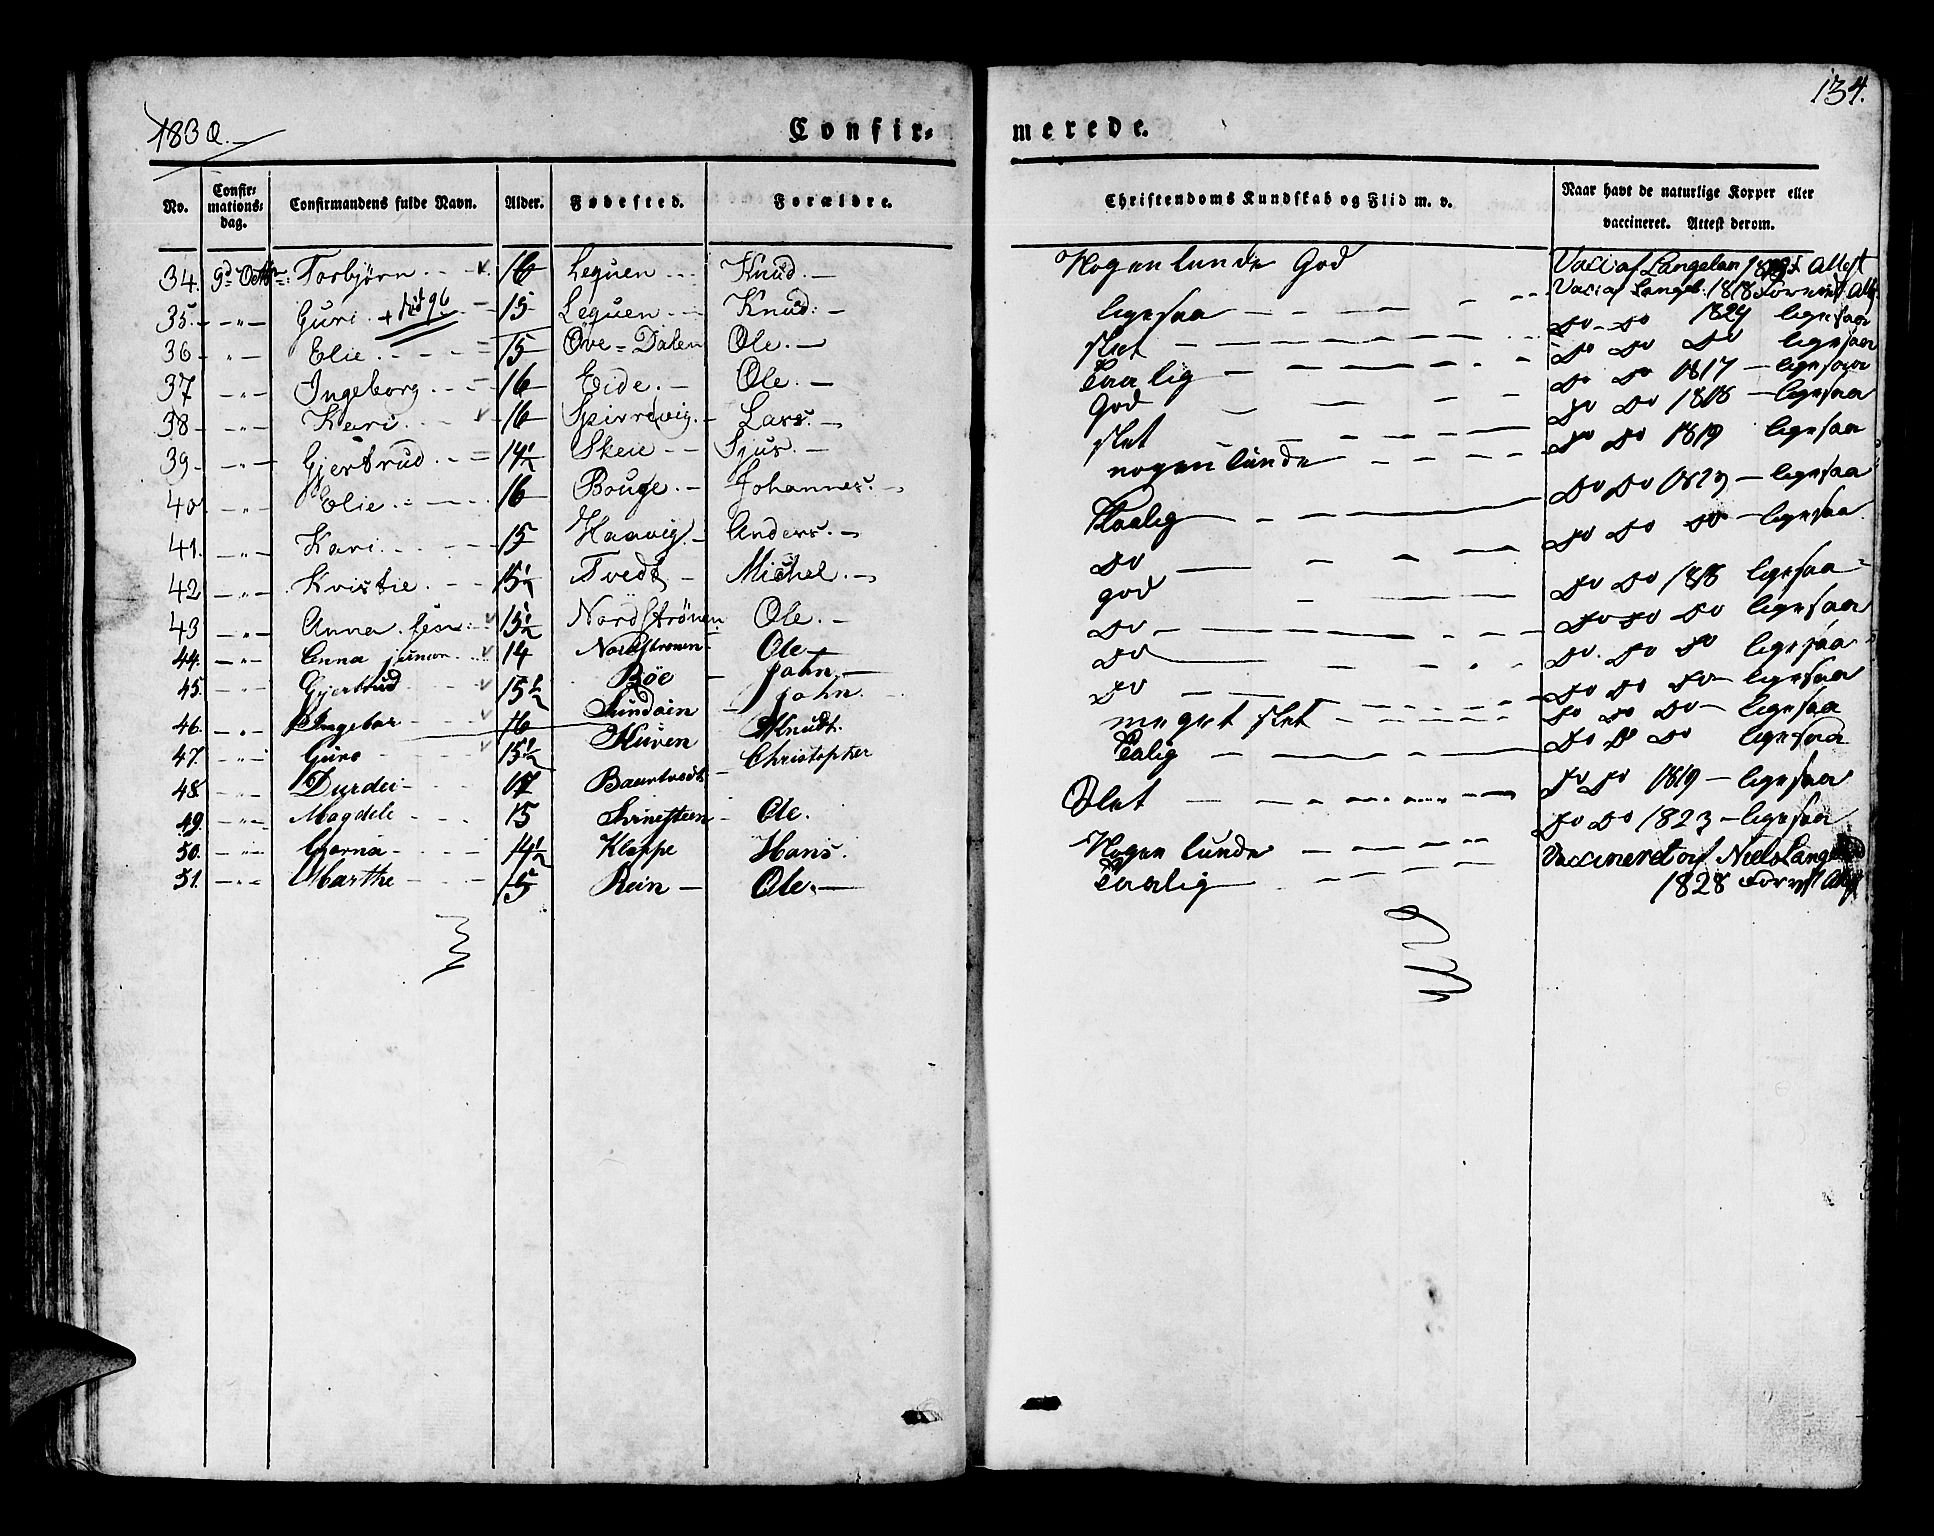 134.
1830.
Confir=
merede.
No. Confir= mations= dag. Confirmandens fulde Navn. Alder. Fødested. Forældre. Christendoms Kundskab og Flid m. v. Naar havt de naturlige Kopper eller vaccineret. Attest derom.
34. 9d Octbr: Torbjørn 16 Lequen Knud. Nogenlunde God Vacc: af Langeland Attest
35. " Guri + 15 Lequen Knud. ligesaa Vacc af Langel. 1818
36 " Elie 15 Øvre=Dalen Ole. slet Do Do 1824 ligesaa
37 " Ingeborg 16 Eide. Ole. Taalig Do Do Do ligesaa
38 " Kari 16 Lars. God Do Do 1817 ligesaa
39 " Gjertrud 14½ Skeie Sjur. slet Do Do 1818 ligesaa
40 " Elie 16 Bouge. Johannes. nogenlunde Do Do 1819 ligesaa
41. " Kari 15 Haavig. Anders. Taalig Do Do 1823 ligesaa
42 " Kristie. 15½ Tvedt Michel. Do Do Do Do ligesaa
43 " Anna sen: 15½ Nordstrønen Ole. god Do Do 1818 ligesaa
44. " Anna junior 14 Nordstrønen Ole Do Do Do Do ligesaa
45. " Gjertrud 15½ Bøe John Do Do Do Do ligesaa
46. " Ingebor 16 Sundøen John. Do Do Do Do ligesaa
47. " Guro 15½ Knudt. meget slet Do Do Do ligesaa
48. " Durdei 17 Christopher Taalig Do Do Do ligesaa
49. " Magdele 15 Ole. Slet Do Do 1819 ligesaa
50. " 14½ Kleppe Hans. Nogenlunde Do Do 1823 ligesaa
51. " Marthe 15 Rein Ole. Taalig Vaccineret af Niels Langeland
1828